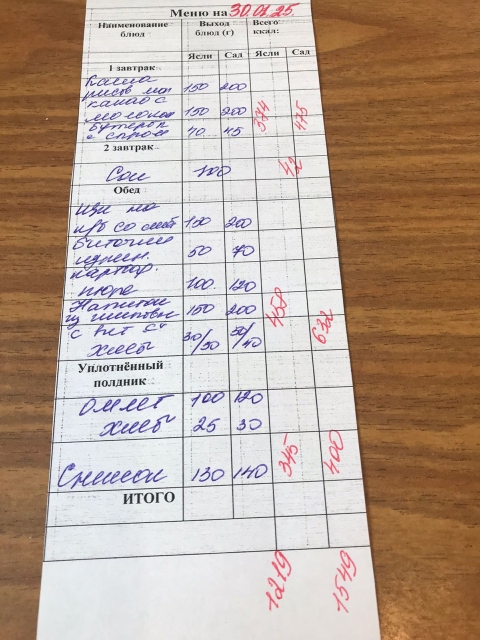 Меню на 30.01.25.
Наименование блюд Выход блюд (г) Всего ккал:
Ясли Сад Ясли Сад
1 завтрак
Каша
рисов мол 150 200
какао с
молоком 150 200
Бутерб
с сыром 40 45
374 475
2 завтрак
Сок 100
42
Обед
Щи на
к/б со смет 150 200
Биточки 50 70
картоф.
пюре 100 120
Напиток
из шиповн 150 200
с вит С
Хлеб 30/30 50/40
458 632
Уплотнённый
полдник
Омлет 100 120
Хлеб 25 30
345 400
Снежок 130 140
ИТОГО
1219 1549